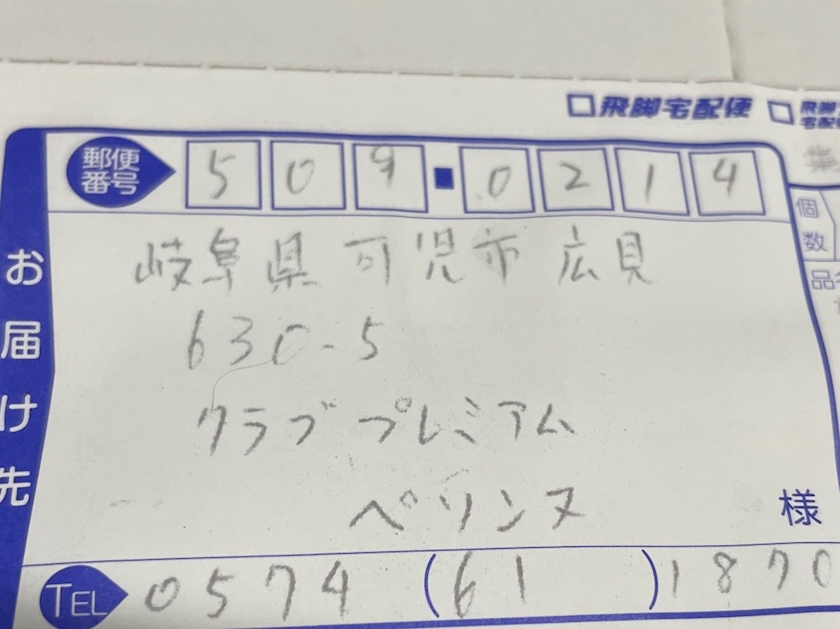 飛脚宅配便
飛脚
宅配
郵便
番号
509 0214
個
数
品
お届け先
岐阜県 可児市 広見
630-5
クラブ プレミアム
ペリンヌ
様
TEL 0574 (61) 1870